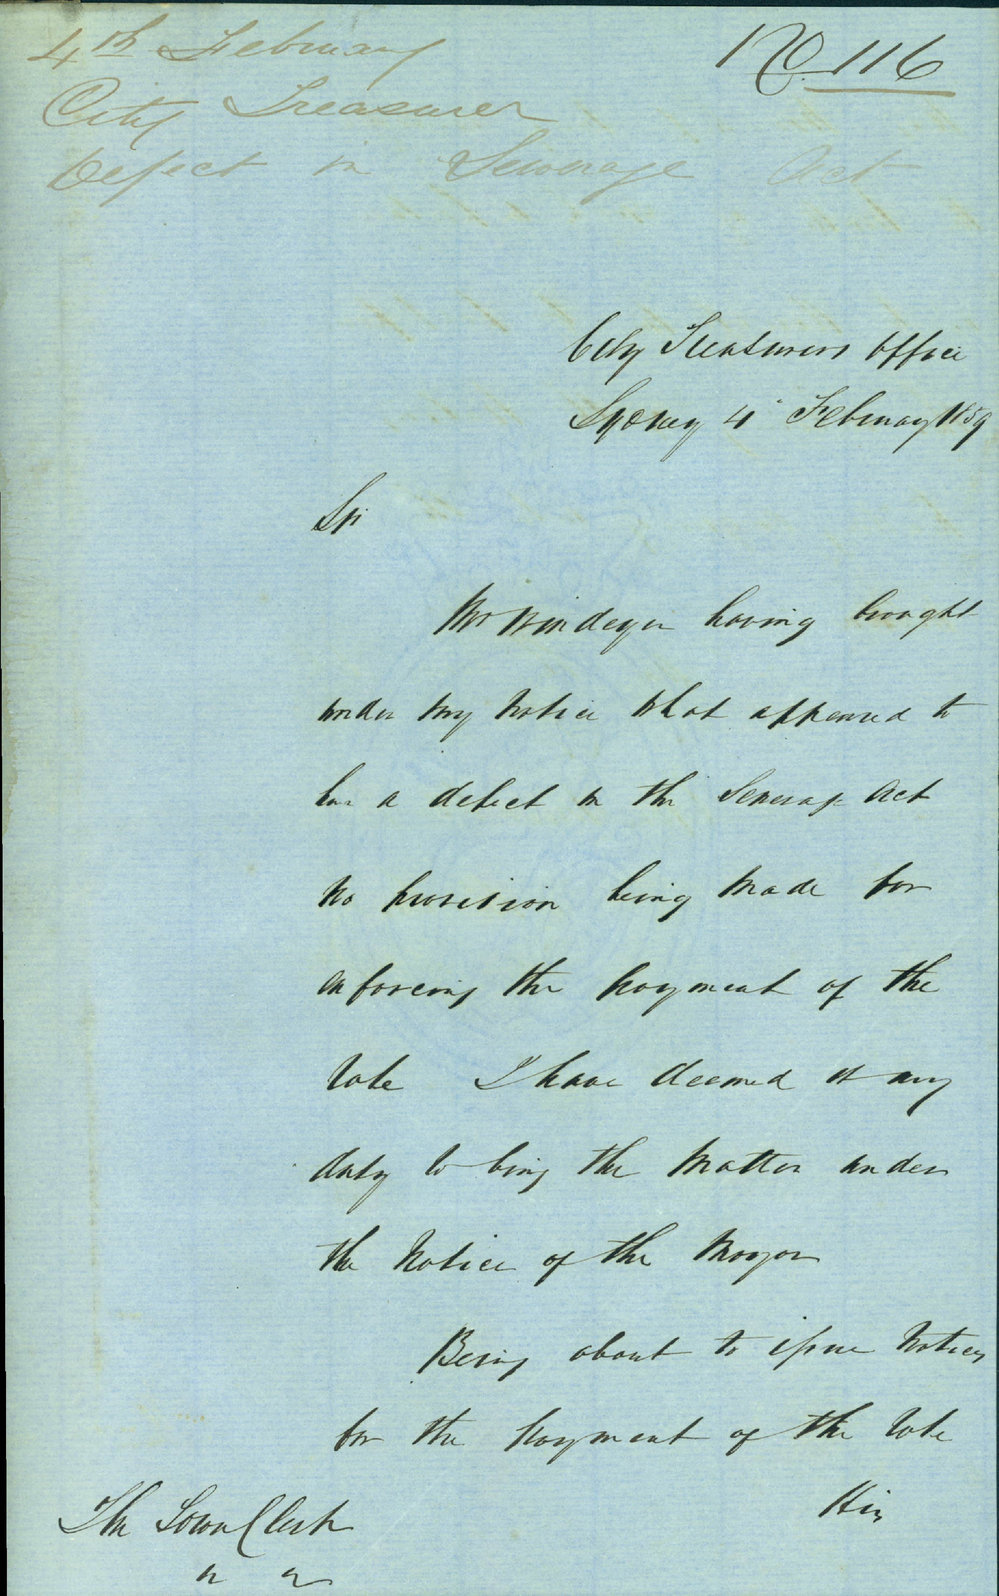 4th February
No. 116
City Treasurer
Defect in Sewerage Act
City Treasurers Office
Sydney 4 February 1859
Sir
Mr Windeyer having brought
under my notice what appeared to
be a defect in the Sewerage Act
no provision being made for
enforcing the payment of the
rate I have deemed it my
duty to bring the matter under
the notice of the Mayor
Being about to issue notices
for the payment of the rate
His
The Town Clerk